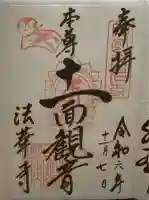 奉拝
令和六年
十一月七日
本尊
十一面観音
法華寺